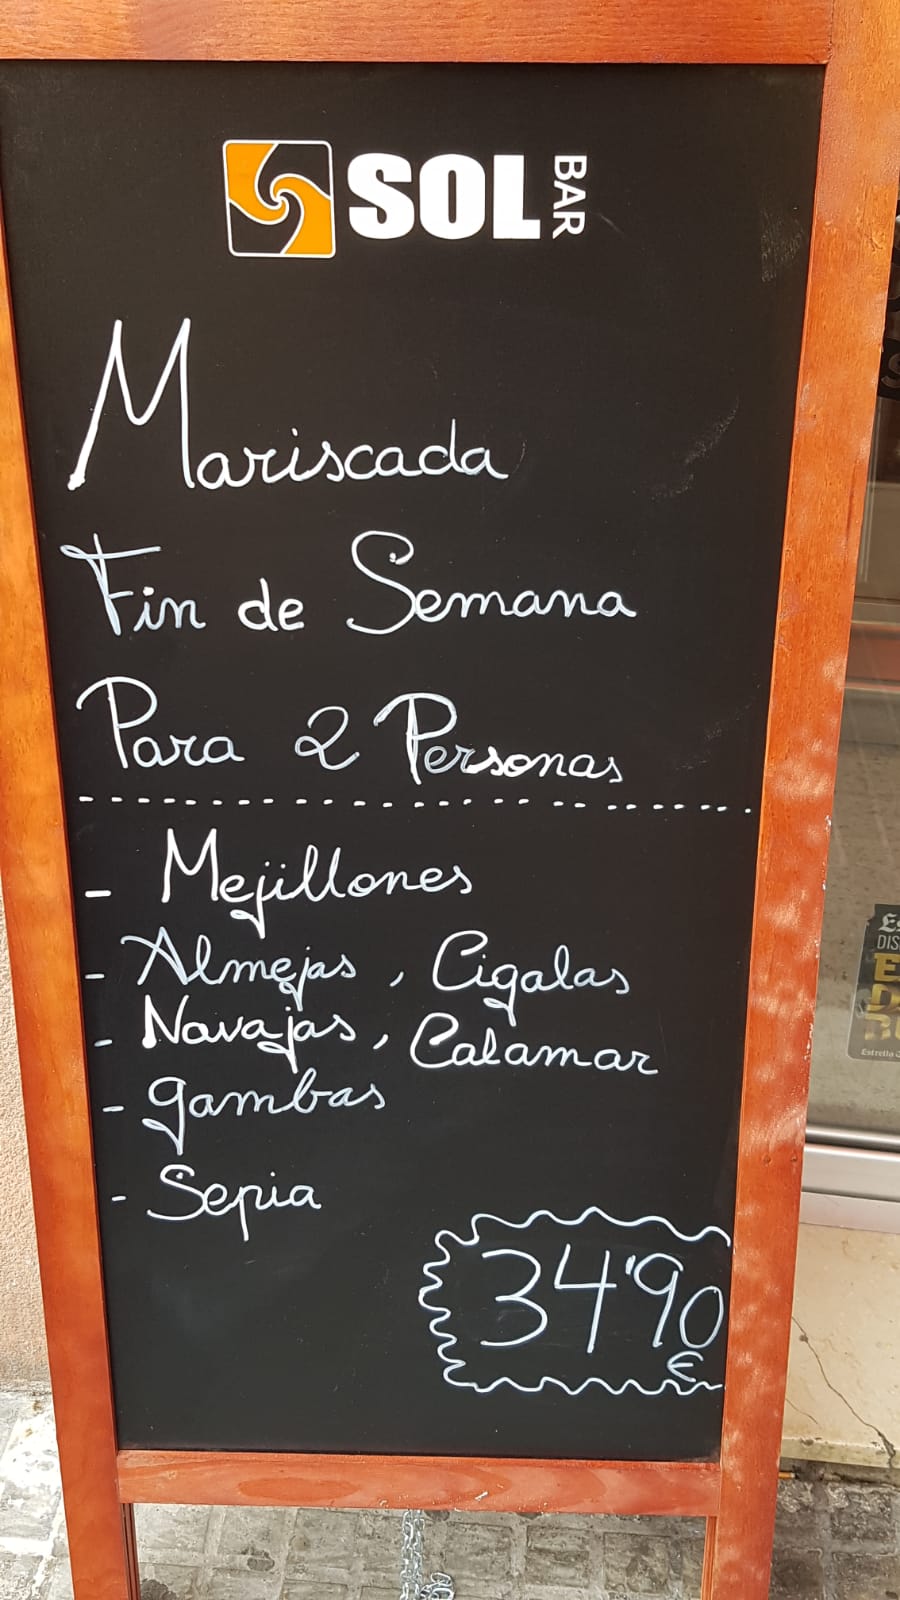 SOL BAR
Mariscada
Fin de Semana
Para 2 Personas
- Mejillones
- Almejas, Cigalas
- Navajas, Calamar
- gambas
- Sepia
34'90
€
Estrella